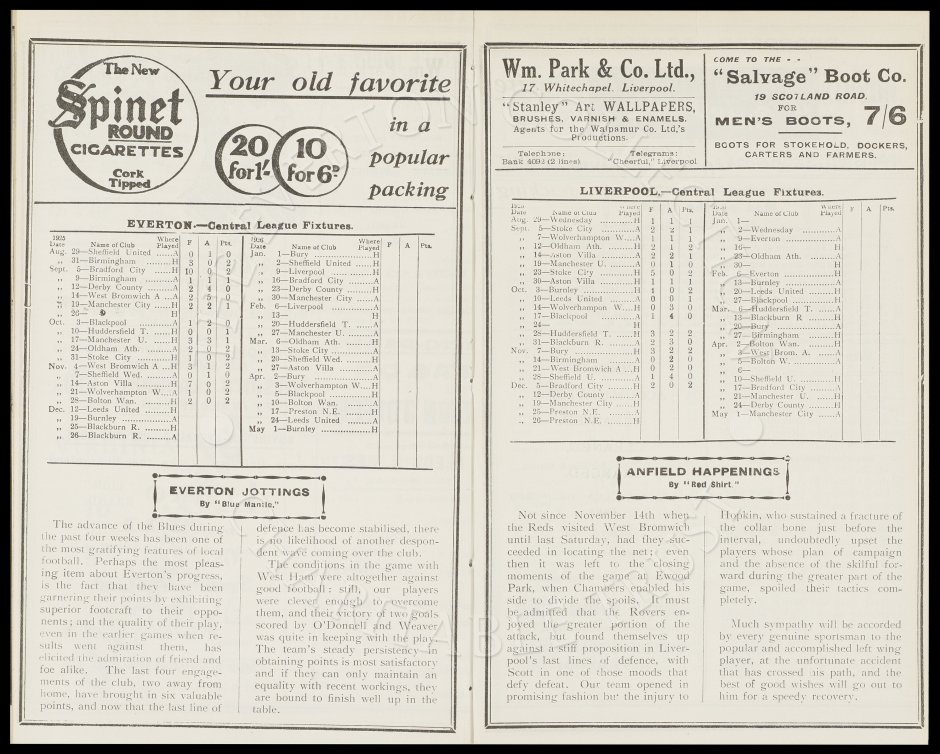 The New
Spinet
ROUND
CIGARETTES
Cork
Tipped
Your old favorite
in a
popular
packing
20
for 1/-
10
for 6D
EVERTON.—Central League Fixtures.
1925
Date Name of Club Where Played F A Pts.
Aug. 29—Sheffield United ......A 0 1 0
„ 31—Birmingham ............H 3 0 2
Sept. 5—Bradford City ......H 10 0 2
„ 9—Birmingham ............A 1 1 1
„ 12—Derby County .........A 2 4 0
„ 14—West Bromwich A ...A 2 5 0
„ 19—Manchester City ......H 2 2 1
„ 26— H
Oct. 3—Blackpool ............A 1 2 0
„ 10—Huddersfield T. ......H 0 0 1
„ 17—Manchester U. ......H 3 3 1
„ 24—Oldham Ath. .........A 2 0 2
„ 31—Stoke City ............H 1 0 2
Nov. 4—West Bromwich A ...H 3 1 2
„ 7—Sheffield Wed. .........A 0 1 0
„ 14—Aston Villa ............H 7 0 2
„ 21—Wolverhampton W....A 1 0 2
„ 28—Bolton Wan. .........H 2 0 2
Dec. 12—Leeds United .........H
„ 19—Burnley ...............A
„ 25—Blackburn R. .........H
„ 26—Blackburn R. .........A
1926
Date Name of Club Where Played F A Pts.
Jan. 1—Bury ..................H
„ 2—Sheffield United ......H
„ 9—Liverpool ...............H
„ 16—Bradford City .........A
„ 23—Derby County .........H
„ 30—Manchester City ......A
Feb. 6—Liverpool ...............A
„ 13— H
„ 20—Huddersfield T. ......A
„ 27—Manchester U. .........A
Mar. 6—Oldham Ath. .........H
„ 13—Stoke City ............A
„ 20—Sheffield Wed. .........H
„ 27—Aston Villa ............A
Apr. 2—Bury ..................A
„ 3—Wolverhampton W....H
„ 5—Blackpool ...............H
„ 10—Bolton Wan. .........A
„ 17—Preston N.E. .........H
„ 24—Leeds United .........A
May 1—Burnley ...............H
EVERTON JOTTINGS
By "Blue Mantle."
The advance of the Blues during
the past four weeks has been one of
the most gratifying features of local
football. Perhaps the most pleas-
ing item about Everton's progress,
is the fact that they have been
garnering their points by exhibiting
superior footcraft to their oppo-
nents; and the quality of their play,
even in the earlier games when re-
sults went against them, has
elicited the admiration of friend and
foe alike. The last four engage-
ments of the club, two away from
home, have brought in six valuable
points, and now that the last line of
defence has become stabilised, there
is no likelihood of another despon-
dent wave coming over the club.
The conditions in the game with
West Ham were altogether against
good football: still, our players
were clever enough to overcome
them, and their victory of two goals
scored by O'Donnell and Weaver
was quite in keeping with the play.
The team's steady persistency in
obtaining points is most satisfactory
and if they can only maintain an
equality with recent workings, they
are bound to finish well up in the
table.
Wm. Park & Co. Ltd.,
17 Whitechapel, Liverpool.
"Stanley" Art WALLPAPERS,
BRUSHES, VARNISH & ENAMELS.
Agents for the Walpamur Co. Ltd.'s
Productions.
Telephone: Telegrams:
Bank 4092 (2 lines) "Cheerful," Liverpool
COME TO THE - -
"Salvage" Boot Co.
19 SCOTLAND ROAD.
FOR
MEN'S BOOTS, 7/6
BOOTS FOR STOKEHOLD, DOCKERS,
CARTERS AND FARMERS.
LIVERPOOL.—Central League Fixtures.
Date Name of Club Where Played F A Pts.
Aug. 29—Wednesday ............H 1 1 1
Sept. 5—Stoke City ............A 2 2 1
„ 7—Wolverhampton W....A 1 1 1
„ 12—Oldham Ath. .........H 2 1 2
„ 14—Aston Villa ............A 2 2 1
„ 19—Manchester U. .........A 0 1 0
„ 23—Stoke City ............H 5 0 2
„ 30—Aston Villa ............H 1 1 1
Oct. 3—Burnley ...............H 1 0 2
„ 10—Leeds United .........A 0 0 1
„ 14—Wolverhampton W....H 0 3 0
„ 17—Blackpool ............A 1 4 0
„ 24— H
„ 28—Huddersfield T. ......H 3 2 2
„ 31—Blackburn R. .........A 2 3 0
Nov. 7—Bury ..................H 3 2 2
„ 14—Birmingham .........A 0 2 0
„ 21—West Bromwich A ...H 0 2 0
„ 28—Sheffield U. .........A 1 4 0
Dec. 5—Bradford City .........H 2 0 2
„ 12—Derby County .........A
„ 19—Manchester City ......H
„ 25—Preston N.E. .........A
„ 26—Preston N.E. .........H
Date Name of Club Where Played F A Pts.
Jan. 1—
„ 2—Wednesday ............A
„ 9—Everton ...............A
„ 16— H
„ 23—Oldham Ath. .........A
„ 30— H
Feb. 6—Everton ...............H
„ 13—Burnley ...............A
„ 20—Leeds United .........H
„ 27—Blackpool ............H
Mar. 6—Huddersfield T. ......A
„ 13—Blackburn R .........H
„ 20—Bury ..................A
„ 27—Birmingham .........H
Apr. 2—Bolton Wan. .........H
„ 3—West Brom. A. ......A
„ 5—Bolton W. ............A
„ 6—
„ 10—Sheffield U. .........H
„ 17—Bradford City .........A
„ 21—Manchester U. ......H
„ 24—Derby County .........H
May 1—Manchester City ......A
ANFIELD HAPPENINGS
By "Red Shirt."
Not since November 14th when
the Reds visited West Bromwich
until last Saturday, had they suc-
ceeded in locating the net; even
then it was left to the closing
moments of the game at Ewood
Park, when Chambers enabled his
side to divide the spoils. It must
be admitted that the Rovers en-
joyed the greater portion of the
attack, but found themselves up
against a stiff proposition in Liver-
pool's last lines of defence, with
Scott in one of those moods that
defy defeat. Our team opened in
promising fashion but the injury to
Hopkin, who sustained a fracture of
the collar bone just before the
interval, undoubtedly upset the
players whose plan of campaign
and the absence of the skilful for-
ward during the greater part of the
game, spoiled their tactics com-
pletely.
Much sympathy will be accorded
by every genuine sportsman to the
popular and accomplished left wing
player, at the unfortunate accident
that has crossed his path, and the
best of good wishes will go out to
him for a speedy recovery.